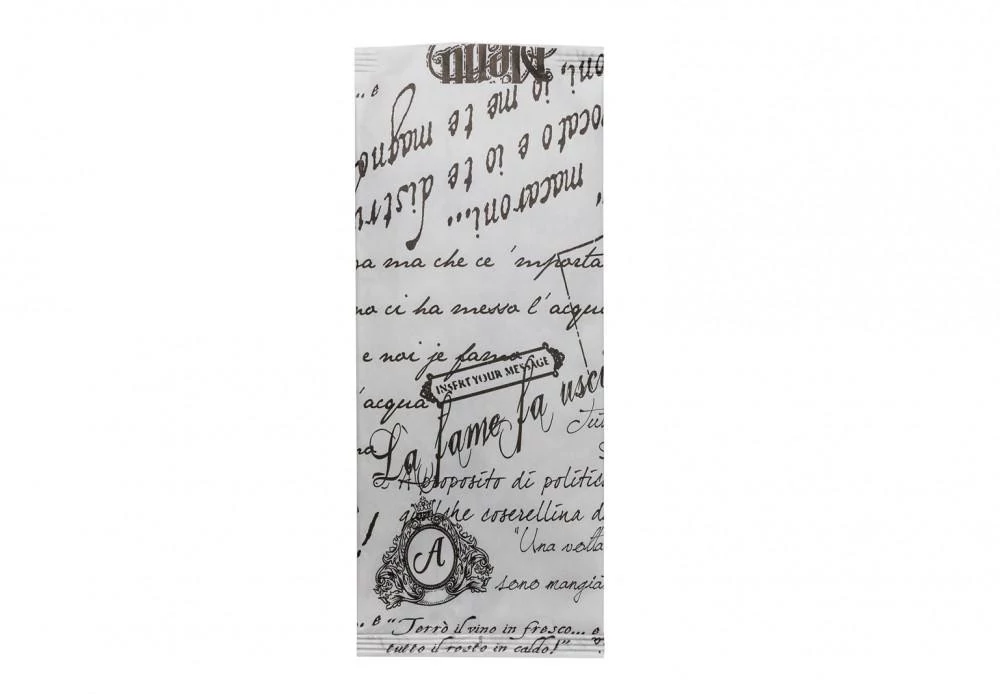 Menu
..e
oni,
io me te magno
ocato e io te distru
macaroni...
a ma che ce 'mporta
no ci ha messo l'acqua
e noi je famo
INSERT YOUR MESSAGE
'acqua
La fame fa usci
na
A proposito di politic
qualche coserellina d
"Una volta
!
A
sono mangia
..e "Terrò il vino in fresco... e
tutto il resto in caldo!"